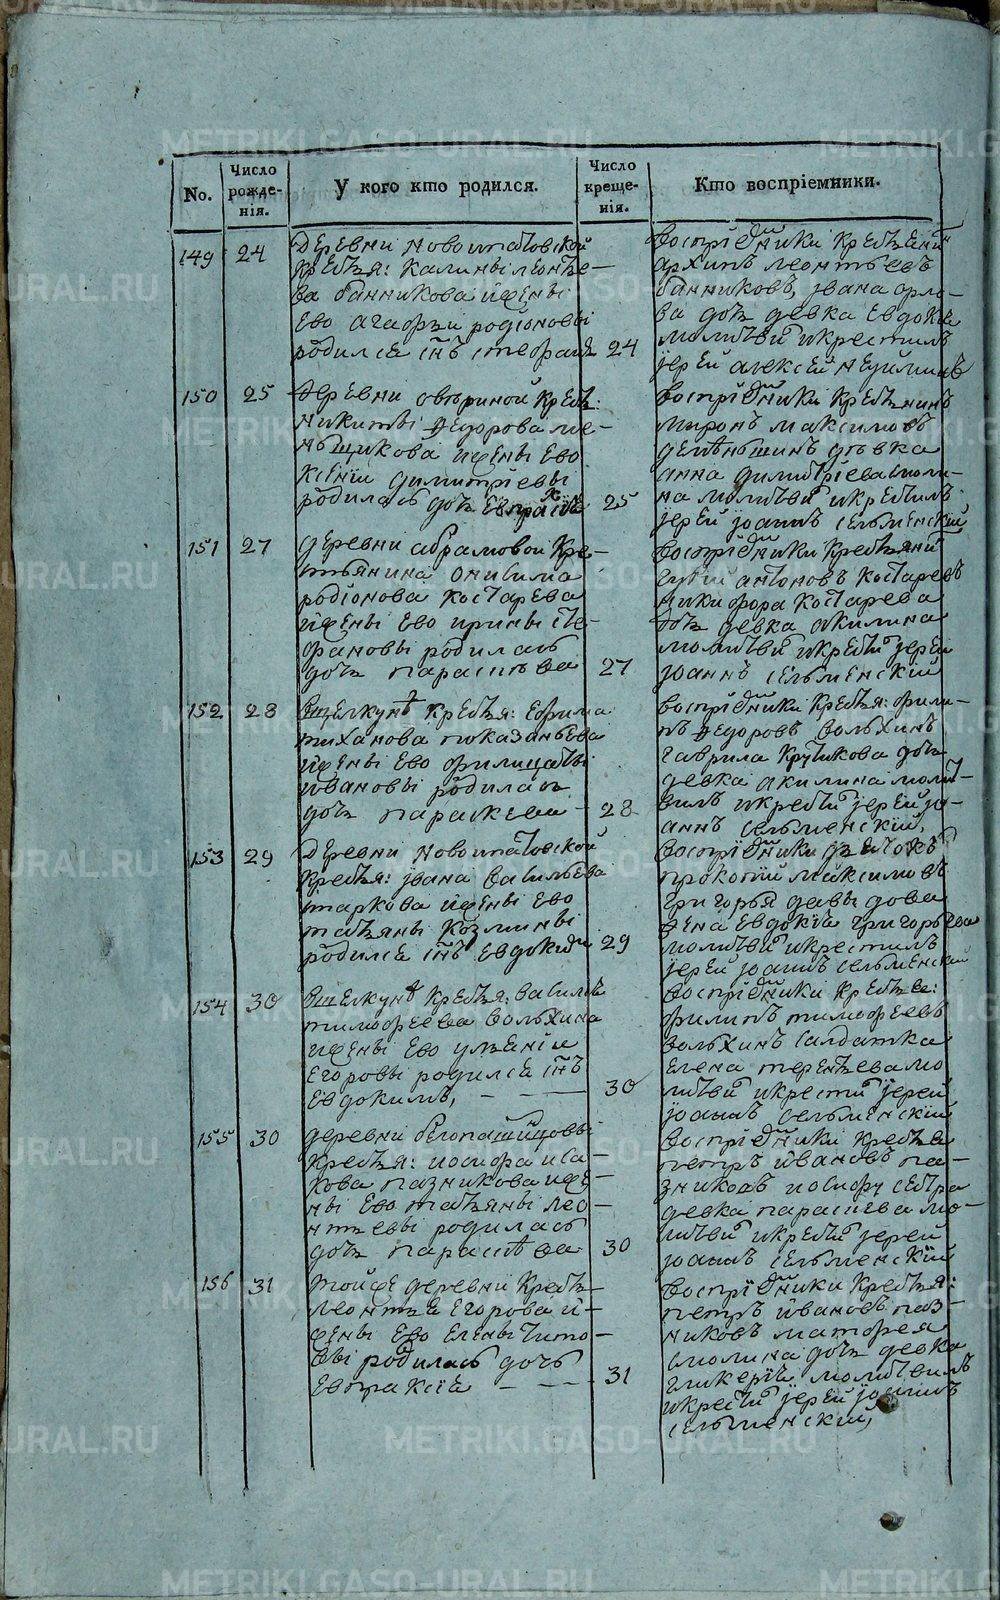 No.
Число рожде-нія.
У кого кто родился.
Число креще-нія.
Кто воспріемники.
149 24
деревни новоипатовской
крестья: калины леонтье-
ва банникова и жены
ево агафьи родіоновы
родился снъ стефанъ 24
воспріемники крестьянинъ
архипъ леонтьевъ
банниковъ, Iвана орло-
ва дочь девка евдокія
молитвилъ и крестилъ
Iерей алексей
150 25
деревни
никиты федорова ме-
ньщикова и жены ево
ксеніи димитріевы
родилась дочь 25
воспріемники крестьянинъ
миронъ максимовъ
девка
анна димитріева
на молитвилъ и крестилъ
Iерей Iоаннъ сельменскій
151 27
деревни абрамовой кре-
стьянина онисима
родіонова костарева
и жены ево ирины сте-
фановы родилась
дочь параскева 27
воспріемники крестьянинъ
антоновъ костаревъ
никифора костарева
дочь девка акилина
молитвилъ и крестилъ Iерей
Iоаннъ сельменскій
152 28
вщелкунѣ крестья: ефима
тиханова показаньева
и жены ево фелицаты
ивановы родилась
дочь параскева 28
воспріемники крестья: фили-
пъ федоровъ вольхинъ
гаврила крутикова дочь
девка акилина молит-
вилъ и крестилъ Iерей Iо-
аннъ сельменскій,
153 29
деревни новоипатовской
крестья: Iвана васильева
таркова и жены ево
татьяны козмины
родился снъ евдокимъ 29
воспріемники
прокопій максимовъ
григорья давыдова
жена евдокія григорьева
молитвилъ и крестилъ
Iерей Iоаннъ сельменскій
154 30
вщелкунѣ крестья: василья
тимофеева вольхина
и жены ево ульяніи
егоровы родился снъ
евдокимъ, 30
воспріемники крестья:
филипъ тимофеевъ
вольхинъ салдатка
елена терентьева мо
литвилъ и крестилъ Iерей
Iоаннъ сельменскій
155 30
деревни
крестья: иосифа иса-
кова пазникова и же-
ны ево татьяны лео-
нтьевы родилась
дочь параскѣва 30
воспріемники крестья
петръ ивановъ па-
зниковъ иосифу сестра
девка параскева мо-
литвилъ и крестилъ Iерей
Iоаннъ сельменскій
156 31
той же деревни крестья-
леонтья егорова и
жены ево елены тито-
вы родилась дочь
евпраксія 31
воспріемники крестья:
петръ ивановъ паз-
никовъ матфея
смолина дочь девка
гликерія молитвилъ
и крестилъ Iерей Iоаннъ
сельменскій,
METRIKI.GASO-URAL.RU